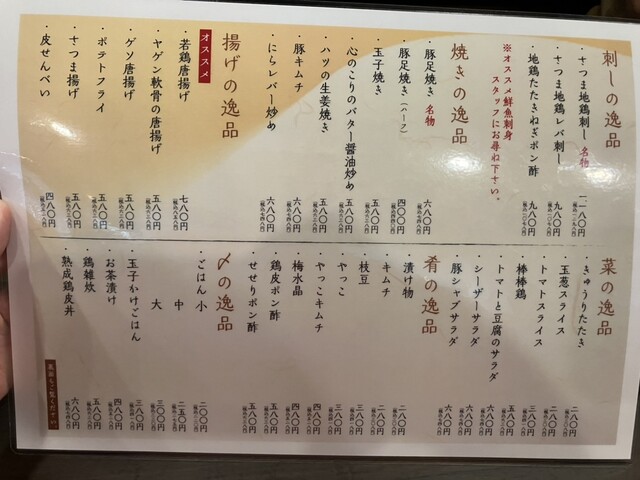 刺しの逸品
・さつま地鶏刺し 名物 一一八〇円
・さつま地鶏レバ刺し 九八〇円
・地鶏たたきねぎポン酢 九八〇円
※オススメ鮮魚刺身
スタッフにお尋ね下さい。
焼きの逸品
・豚足焼き 名物 六八〇円
・豚足焼き(ハーフ) 四〇〇円
・玉子焼き 五八〇円
・心のこりのバター醤油炒め 五八〇円
・ハツの生姜焼き 五八〇円
・豚キムチ 六八〇円
・にらレバー炒め 六八〇円
揚げの逸品
オススメ
・若鶏唐揚げ 七八〇円
・ヤゲン軟骨の唐揚げ 五八〇円
・ゲソ唐揚げ 五八〇円
・ポテトフライ 五八〇円
・さつま揚げ 五八〇円
・皮せんべい 四八〇円
菜の逸品
・きゅうりたたき 二八〇円
・玉葱スライス 二八〇円
・トマトスライス 三八〇円
・棒棒鶏 五八〇円
・トマトと豆腐のサラダ 六八〇円
・シーザーサラダ 六八〇円
・豚シャブサラダ 六八〇円
肴の逸品
・漬け物 二八〇円
・キムチ 二八〇円
・枝豆 三八〇円
・やっこ 三八〇円
・やっこキムチ 四八〇円
・梅水晶 四八〇円
・鶏皮ポン酢 五八〇円
・せせりポン酢 五八〇円
〆の逸品
・ごはん 小 二〇〇円
中 二五〇円
大 三〇〇円
・玉子かけごはん 三八〇円
・お茶漬け 四八〇円
・鶏雑炊 五八〇円
・熟成鶏皮丼 六八〇円
裏面もご覧ください。